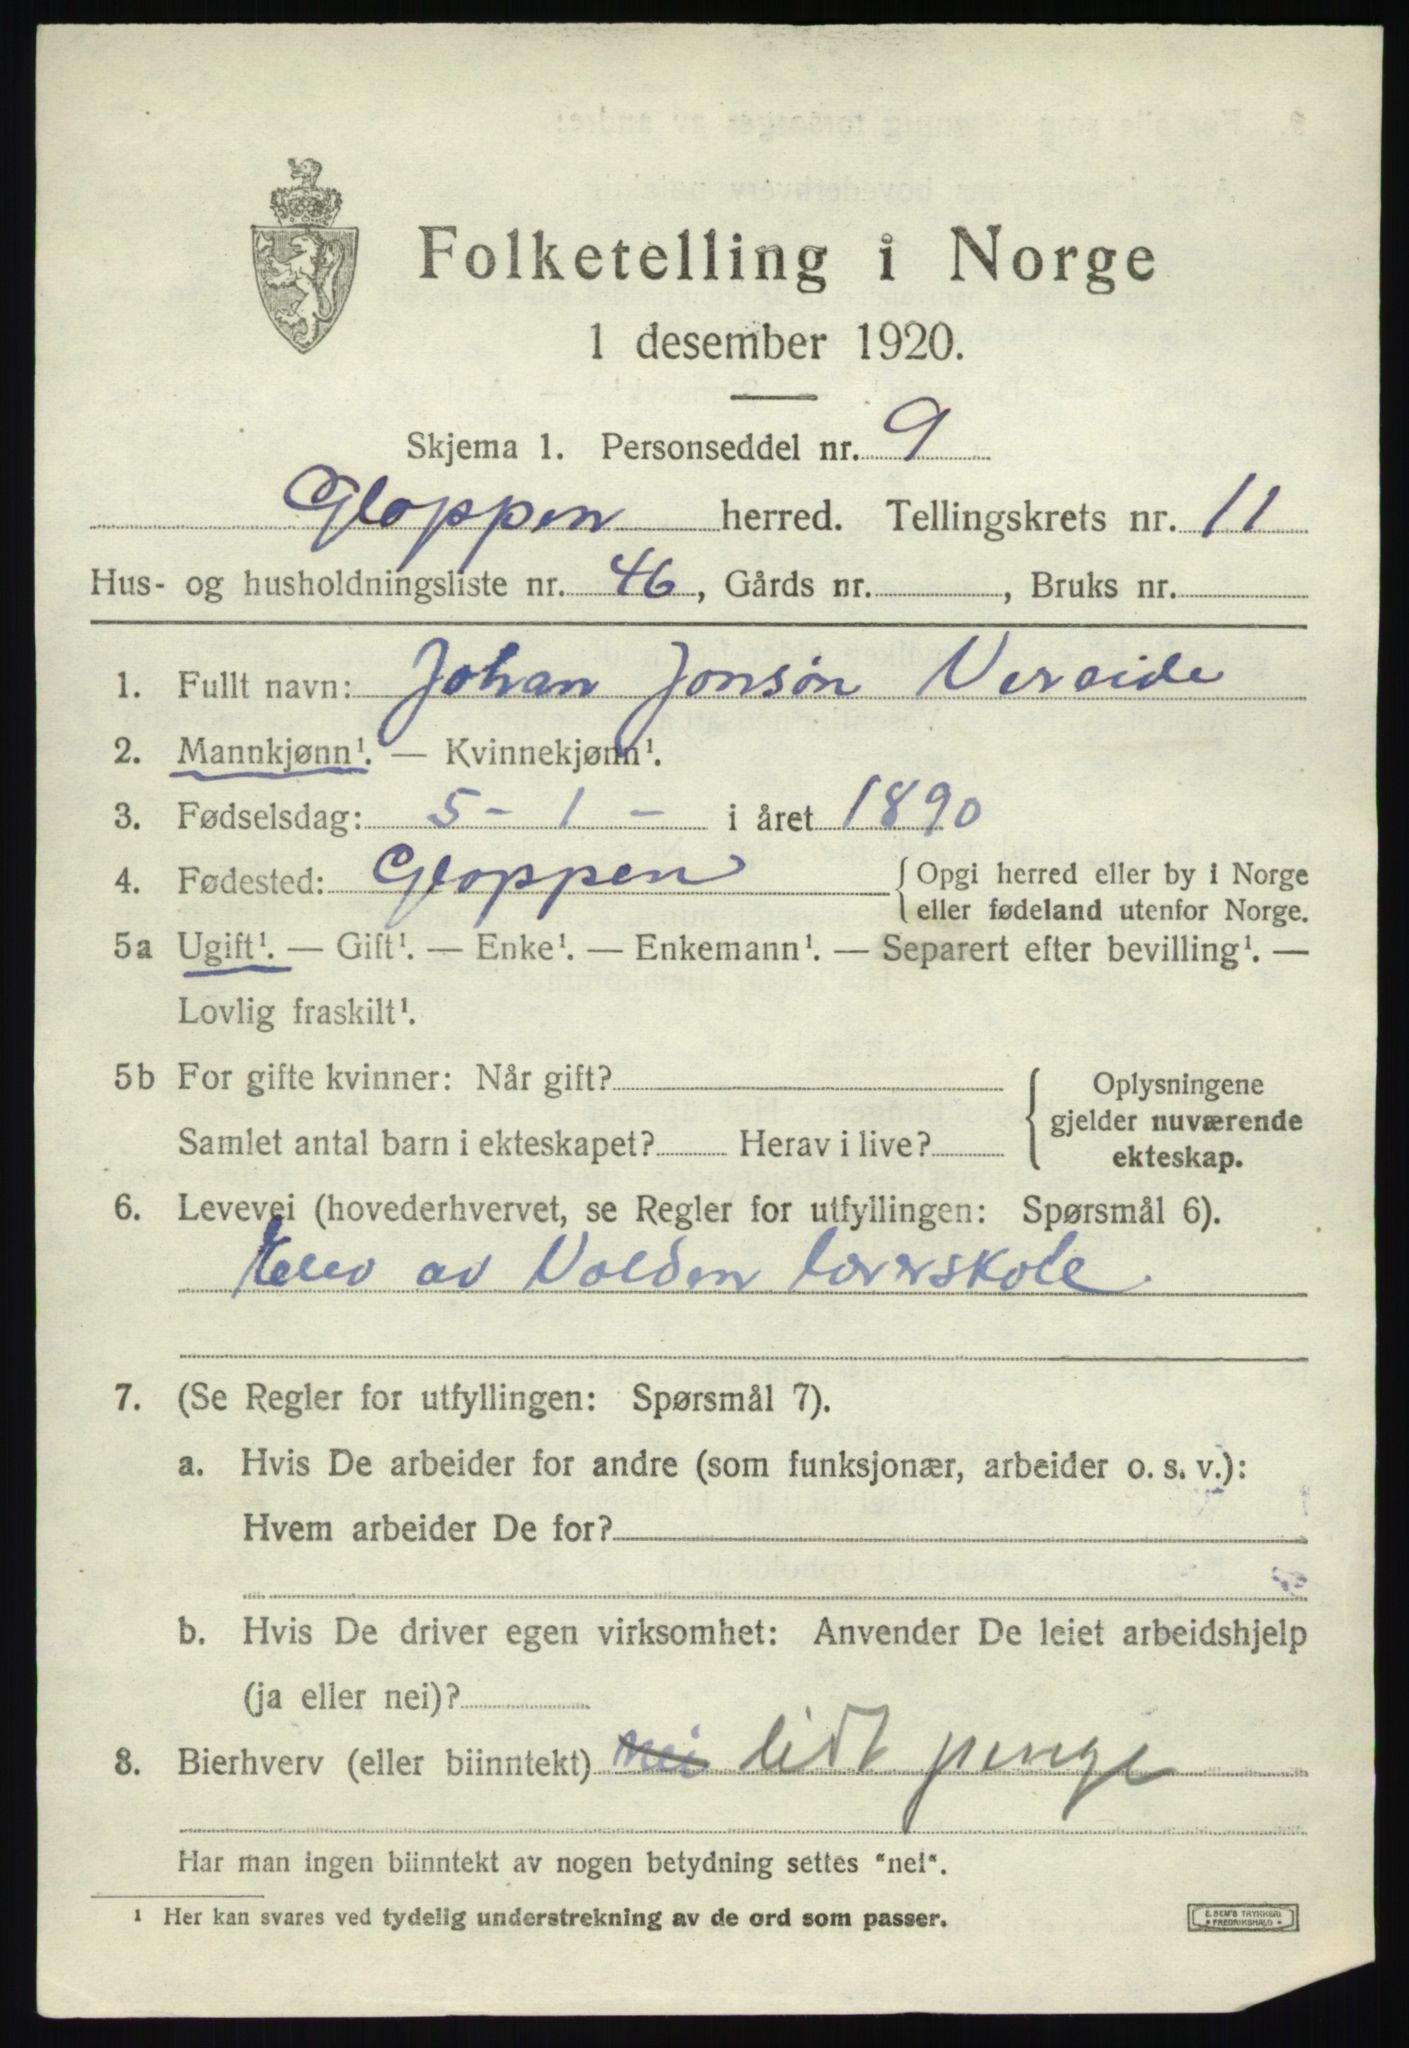 Folketelling i Norge
1 desember 1920.
Skjema 1. Personseddel nr. 9
Gloppen herred. Tellingskrets nr. 11
Hus- og husholdningsliste nr. 46, Gårds nr. , Bruks nr.
1. Fullt navn: Johan Jonsøn Vereide
2. Mannkjønn¹. — Kvinnekjønn¹.
3. Fødselsdag: 5 - 1 - i året 1890
4. Fødested: Gloppen { Opgi herred eller by i Norge
eller fødeland utenfor Norge.
5a Ugift¹. — Gift¹. — Enke¹. — Enkemann¹. — Separert efter bevilling¹. —
Lovlig fraskilt¹.
5b For gifte kvinner: Når gift?
Samlet antal barn i ekteskapet? Herav i live?
Oplysningene
gjelder nuværende
ekteskap.
6. Levevei (hovederhvervet, se Regler for utfyllingen: Spørsmål 6).
Elev av Volden lærerskole
7. (Se Regler for utfyllingen: Spørsmål 7).
a. Hvis De arbeider for andre (som funksjonær, arbeider o. s. v.):
Hvem arbeider De for?
b. Hvis De driver egen virksomhet: Anvender De leiet arbeidshjelp
(ja eller nei)?
8. Bierhverv (eller biinntekt) nei lidt penge
Har man ingen biinntekt av nogen betydning settes "nei".
¹ Her kan svares ved tydelig understrekning av de ord som passer.
E. SEM'S TRYKKERI
FREDRIKSHALD